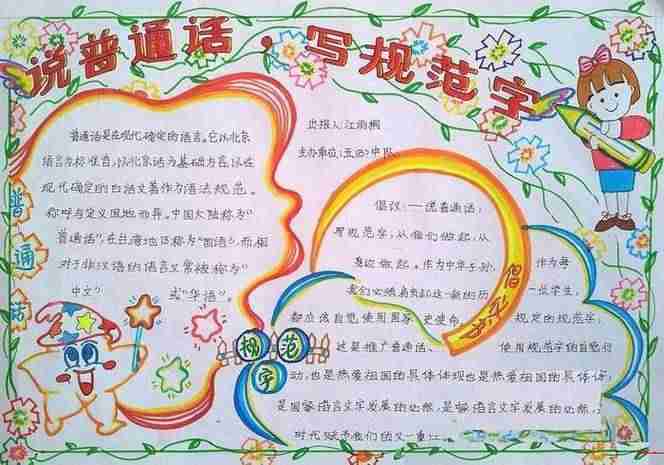 说普通话，写规范字
普通话是在现代确定的语言。它以北京
语音为标准音，以北京话为基础方言，以
现代确定的白话文著作为语法规范。
称呼与定义因地而异。中国大陆称为"
普通话"，在台湾地区称为"国语"，而相
对于非汉语的语言又常被称为"
中文" 或"华语"。
普
通
话
出报人：江雨桐
主办单位：
规
范
字
倡
倡议：一说普通话，
写规范字，从我们做起，从
身边做起。作为中华 作为每
我们必须肩负起这一新的历 一代学生，
都应该自觉使用国家 史使命 规定的规范字，
这是推广普通话、 使用规范字的自觉行
动，也是热爱祖国的具体体现也是热爱祖国的具体体
是国家语言文字发展的必然，是 语言文字发展的必然，
时代赋予我们的又一重